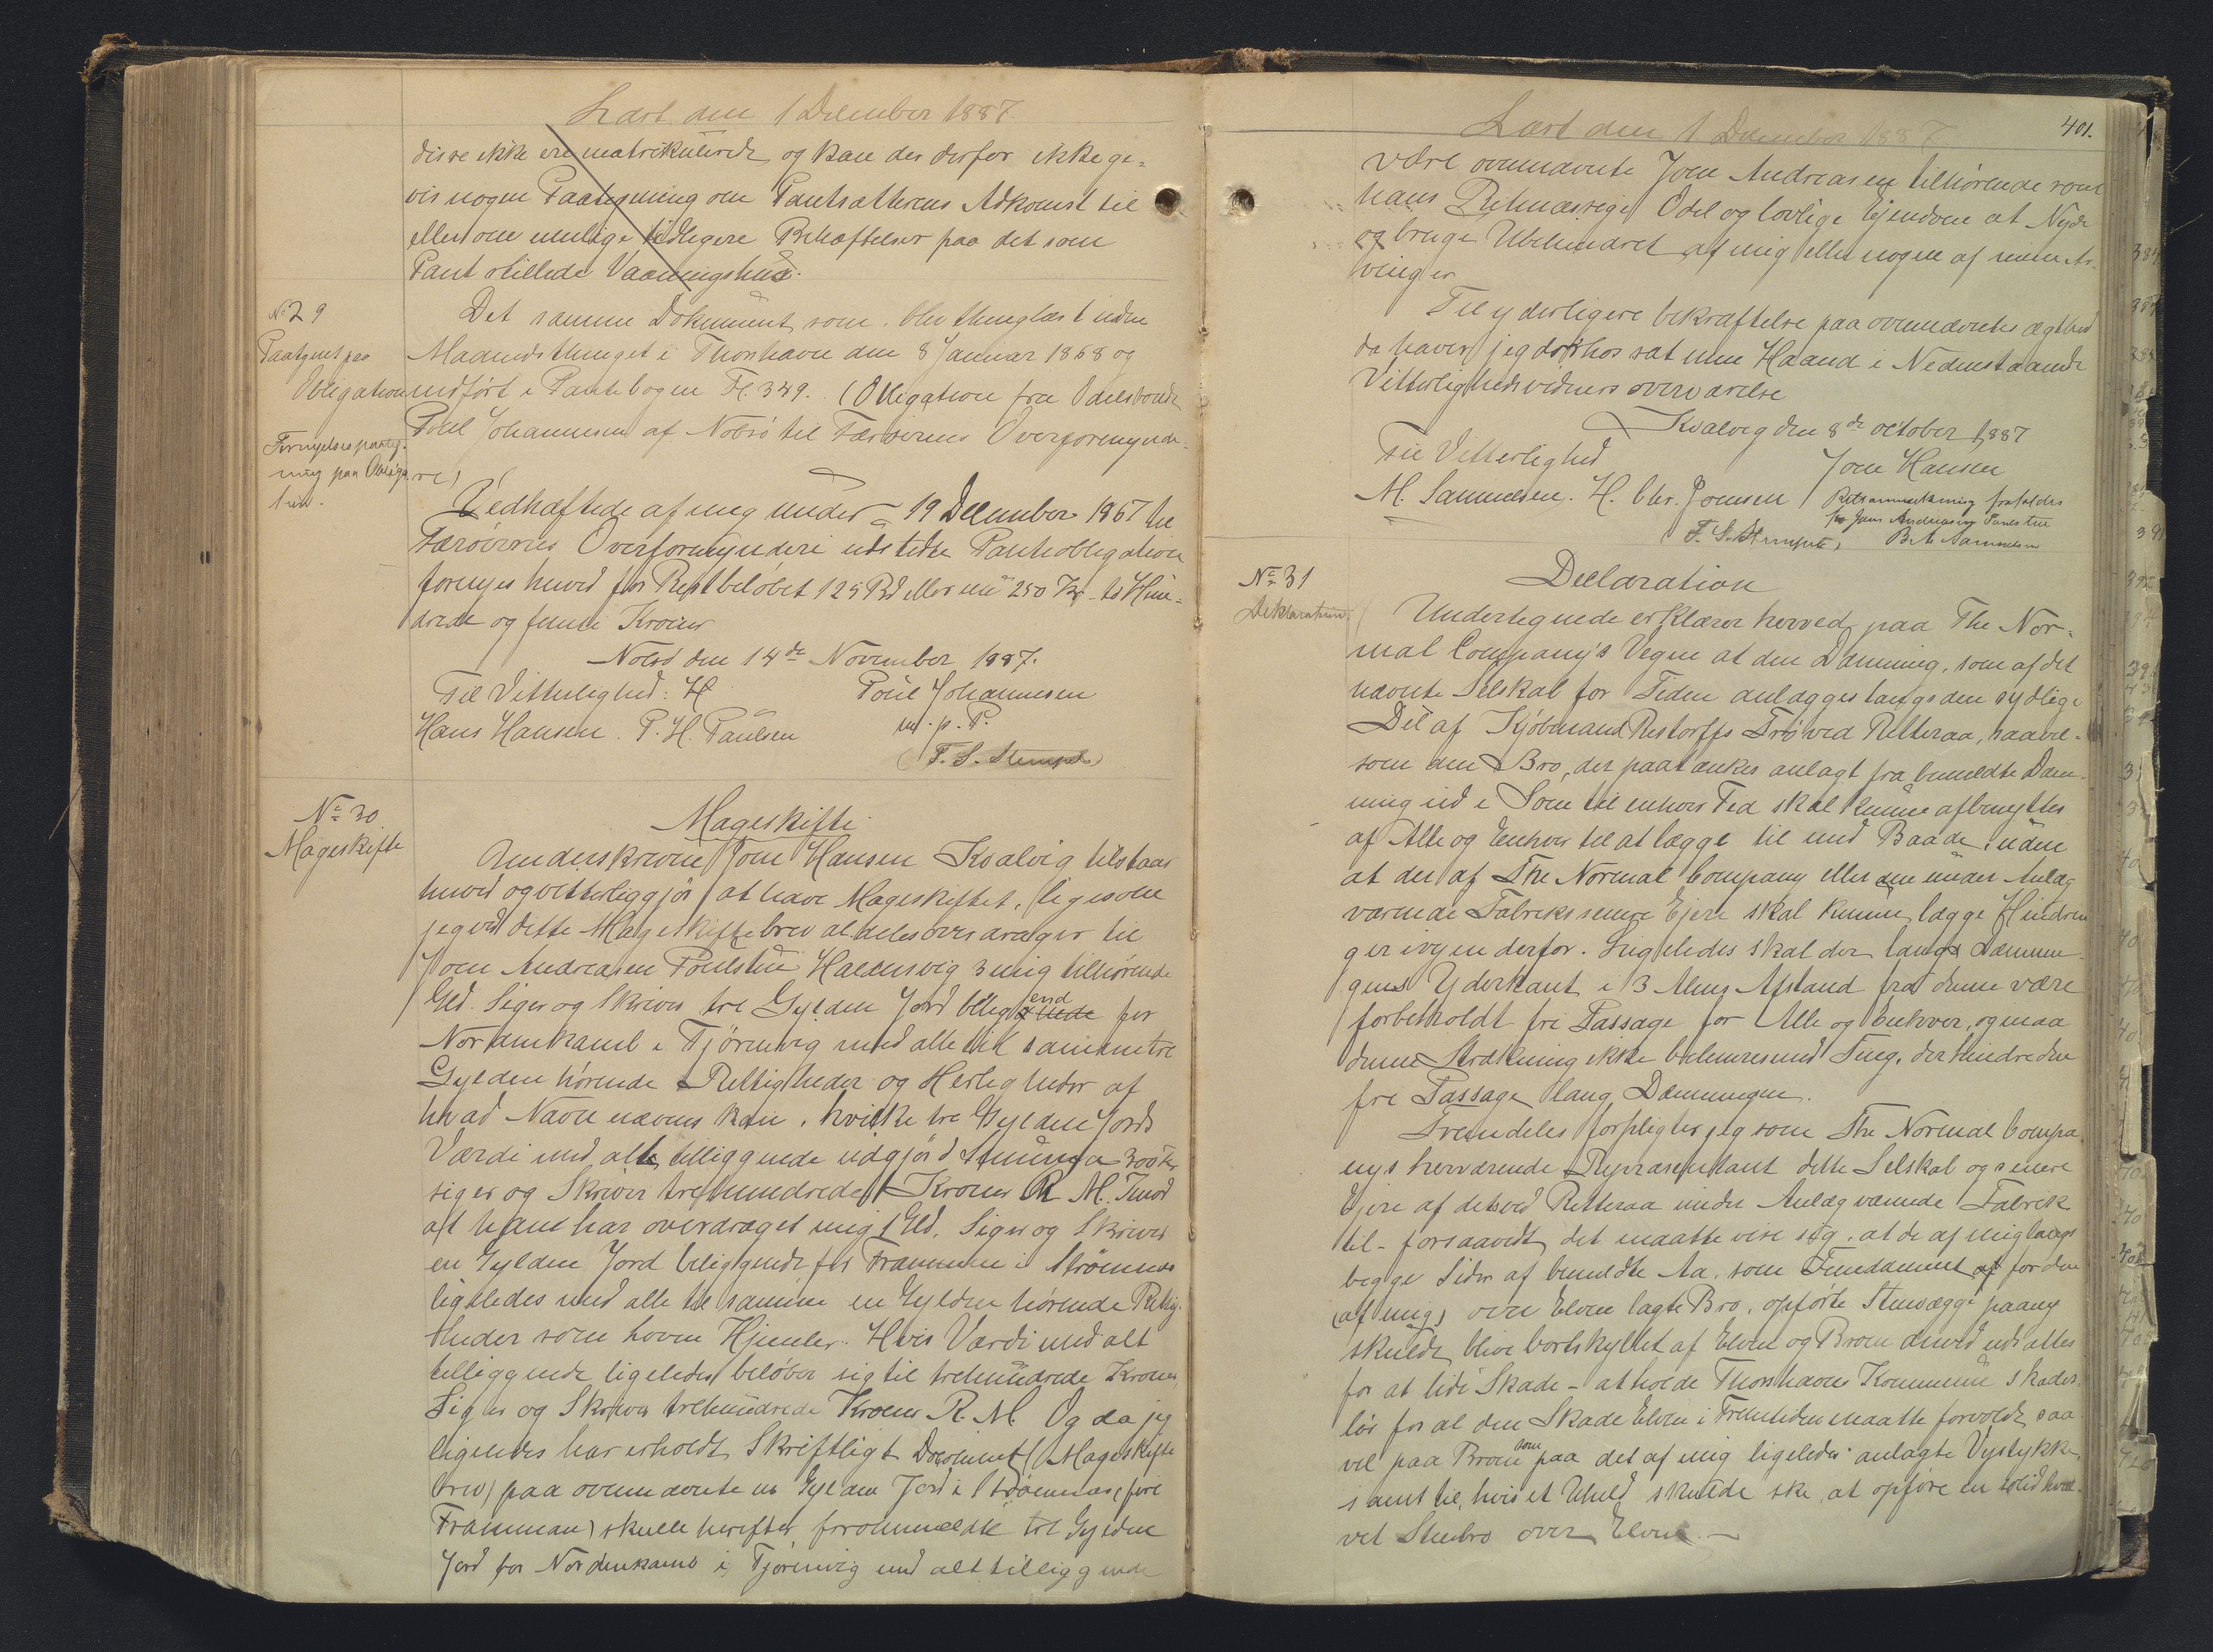 Læst den 1 December 1887.
disse ikke ere matrikulerede og kan der derfor ikke gi-
vis nogen Paategning om Pantsætterens Adkomst til
eller om mulige tidligere Behæftelser paa det som
Pant stillede Vaaningshus.
No 29
Paategnet paa
Obligation
Fornyelsespaateg-
ning paa Obliga
tion.
Det samme Dokument som blev thinglæst inden
Maanedsthinget i Thorshavn den 8 Januar 1868 og
indført i Pantebogen Fl. 349. (Obligation fra Odelsbonde
Poul Johannesen af Nolsö til Færøernes Overformynde-
re)
Vedhæftede af mig under 19 December 1867 til
Færøernes Overformynderi udstedte Panteobligation
fornyes herved for Restbeløbet 125 Rd eller nu 250 Kr - to Hun-
drede og femti Kroner
Nolsö den 14de November 1887.
Til Vitterlighed: H Poul Johannesen
Hans Hansen. P. H. Paulsen m. p. P.
(F. S. Stempel)
No 30
Mageskifte
Mageskifte
Underskrevne Joen Hansen Kvalvig tilstaar
herved og vitterliggjör at have Mageskiftet, ligesom
jeg ved dette Mageskiftebrev aldeles overdrager til
Joen Andreasen Poulstue Haldersvig 3 mig tilhørende
Gld. Siger og Skriver tre Gylden Jord beliggende end for
Nordenkamb i Tjörnevig med alle til samme tre
Gylden hörende Rettigheder og Herligheder af
hvad Navn nævnes kan, hvilke tre Gylden Jords
Værdi med alt tilliggende udgjör d Summa 300 Kr
siger og Skriver trehundrede Kroner R. M. Imod
at han har overdraget mig 1 Gld. Siger og Skriver
en Gylden Jord beliggende for Frammen i Strömnæs
ligeledes med alle til samme en Gylden hörende Rettig-
heder som hoven Hjemler. Hvis Værdi med alt
tilliggende ligeledes beløber sig til trehundrede Kroner,
Siger og Skriver trehundrede Kroner R. M. Og da jeg
ligeledes har erholdt Skriftligt Document (Mageskifte
brev) paa ovennævnte en Gylden Jord i Strömnæs (fire
Framman) skulle herefter forommeldte tre Gylden
Jord for Nordenkamb i Tjörnevig med alt tilliggende
Læst den 1 December 1887
401.
være ovennævnte Joen Andreasen tilhörende som
hans Retmæssige Odel og lovlige Ejendom at Nyde
og bruge Ubehindret af mig eller nogen af mine Ar-
vinger
Til yderligere bekræftelse paa ovennævntes ægthed
da haver jeg derhos sat min Haand i Nedenstaaende
Vitterlighedsvidners overværelse
Kvalvig den 8de october 1887
Til Vitterlighed Joen Hansen
M. Samuelsen. H. Chr. Joensen Retsanmærkning frafaldes
for Joen Andreasen Poulstue
F. S. Stempel) Samuelsen
No 31
Deklaration
Declaration
Undertegnede erklærer herved paa The Nor-
mal Company's Vegne at den Dæmning, som af det
nævnte Selskab for Tiden anlægges langs den sydlige
Del af Kjöbmand Restorffs Trö ved Retteraa, saavel-
som den Bro, der paatænkes anlagt fra bemeldte Dæm-
ning ud i Söen til enhver Tid skal kunne afbenyttes
af Alle og Enhver til at lægge til med Baade, uden
at der af The Normal Company eller den under Anlæg
værende Fabriks senere Ejere skal kunne lægges Hindrin
ger i vejen derfor. Ligeledes skal der langs Dæmnin-
gens Yderkant i 3 Alens Afstand fra denne være
forbeholdt fri Passage for Alle og Enhver, og maa
denne Strækning ikke belemres med Ting, der hindre den
fri Passage lang Dæmningen.
Fremdeles forpligter jeg som The Normal Compa-
nys herværende Repræsentant dette Selskab og senere
Ejere af det ved Retteraa under Anlæg værende Fabrik
til - forsaavidt det maatte vise sig, at de af mig langs
begge Sider af bemeldte Aa, som Fundament af for den
(af mig) over Elven lagte Bro, opförte Stenvægge paany
skulde blive bortskyllet af Elven og Broen derved udsættes
for at lide Skade - at holde Thorshavns Kommune skades-
lös for al den Skade Elven i Fremtiden maatte forvolde saa
vel paa Broen som paa det af mig ligeledes anlagte Vejstykke
samt til, hvis et Uheld skulde ske, at opføre en solid hvæl-
vet Stenbro over Elven. —